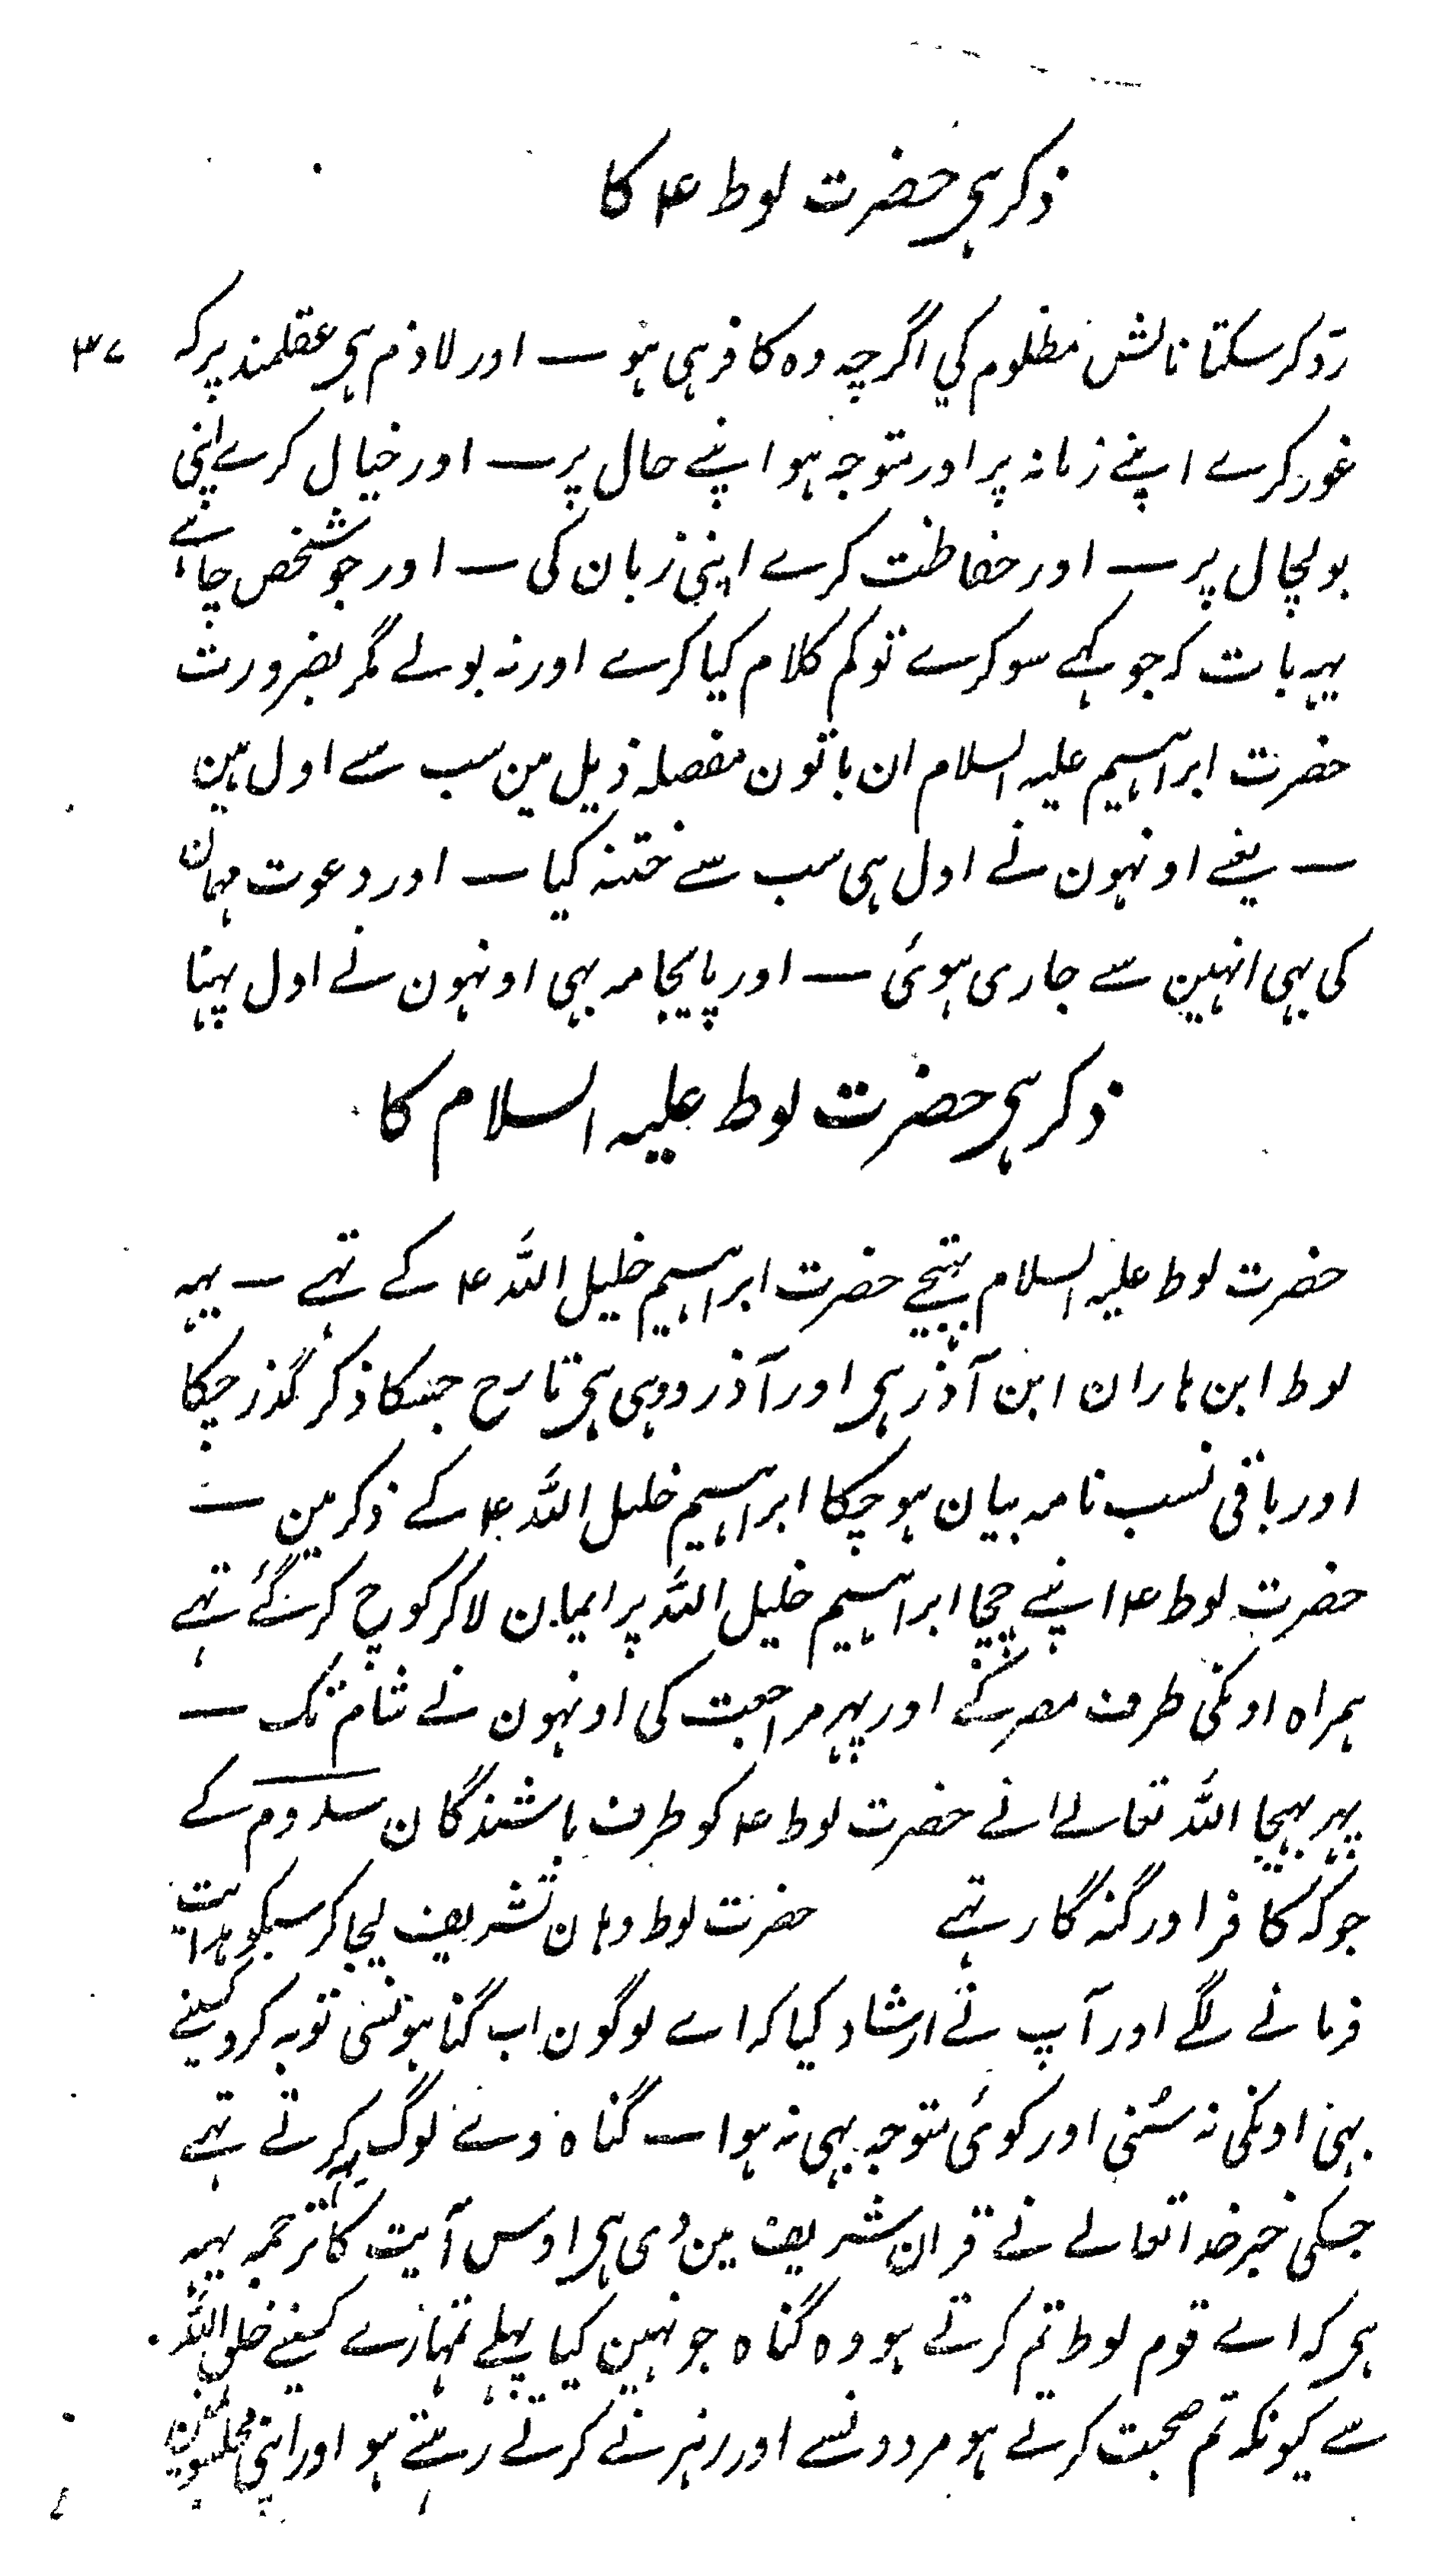 ذکر ہی حضرت لوط ۴ کا
۳۷
ردّ کر سکتا نالش مظلوم کي اگرچہ وہ کافر ہی ہو — اور لازم ہی عقلمند پر کہ
غور کرے اپنے زمانہ پر اور متوجہ ہو اپنے حال پر — اور خیال کرے اپنی
بولچال پر — اور حفاظت کرے اپنی زبان کی — اور جو شخص چاہے
یہہ بات کہ جو کہے سو کرے تو کم کلام کیا کرے اور نہ بولے مگر بضرورت
حضرت ابراہیم علیہ السلام ان باتون مفصلہ ذیل مین سب سے اول ہین
— یعنے اونہون نے اول ہی سب سے ختنہ کیا — اور دعوت مہمان
کی بہی انہین سے جاری ہوئی — اور پایجامہ بہی اونہون نے اول پہنا
ذکر ہی حضرت لوط علیہ السلام کا
حضرت لوط علیہ السلام بہتیجے حضرت ابراہیم خلیل اللہ ۴ کے تہے — یہہ
لوط ابن ہاران ابن آذر ہی اور آذر وہی ہی تارح جسکا ذکر گذر چکا
اور باقی نسب نامہ بیان ہو چکا ابراہیم خلیل اللہ ۴ کے ذکر مین —
حضرت لوط ۴ اپنے چچا ابراہیم خلیل اللہ پر ایمان لا کر کوچ کر گئے تہے
ہمراہ اونکی طرف مصر کے اور پہر مراجعت کی اونہون نے شام تک —
پہر بہیجا اللہ تعالے انے حضرت لوط ۴ کو طرف باشندگان سدوم کے
جو کہ کافر اور گنہ گار تہے حضرت لوط وہان تشریف لیجا کر سبکو ہدایت
فرمانے لگے اور آپ نے ارشاد کیا کہ اے لوگون اب گناہونسی توبہ کرو کسینے
بہی اونکی نہ سُنی اور کوئی متوجہ بہی نہ ہوا — گناہ وے لوگ کرتے تہے
جسکی خبر خدا تعالے نے قران شریف مین دی ہی اوس آیت کا ترجمہ یہہ
ہی کہ اے قوم لوط تم کرتے ہو وہ گناہ جو نہین کیا پہلے تمہارے کسینے خلق اللہ
سے کیونکہ تم صحبت کرتے ہو مردونسے اور رہزنے کرتے رہتے ہو اور اپنی مجلسون مین